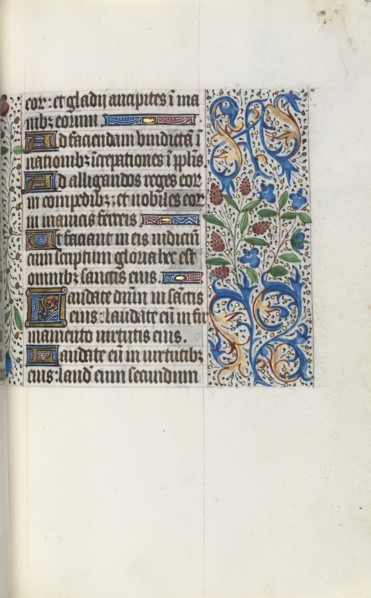 cor: et gladii ancipites ī ma
nibꝫ eorum
Ad faciendam vindictā ī
nationibꝫ īcrepationes ī pplīs.
Ad alligandos reges eoꝝ
in compedibꝫ: et nobiles eoꝝ
in manicis ferreis
Ut faciant in eis iudiciū
cum scriptum gloria hec est
omnibꝫ sanctis eius.
Laudate dnm̄ in sāctis
eius: laudate eū in fir
mamento uirtutis eius.
Laudate eū in uirtutibꝫ
eius: laud eum secundum